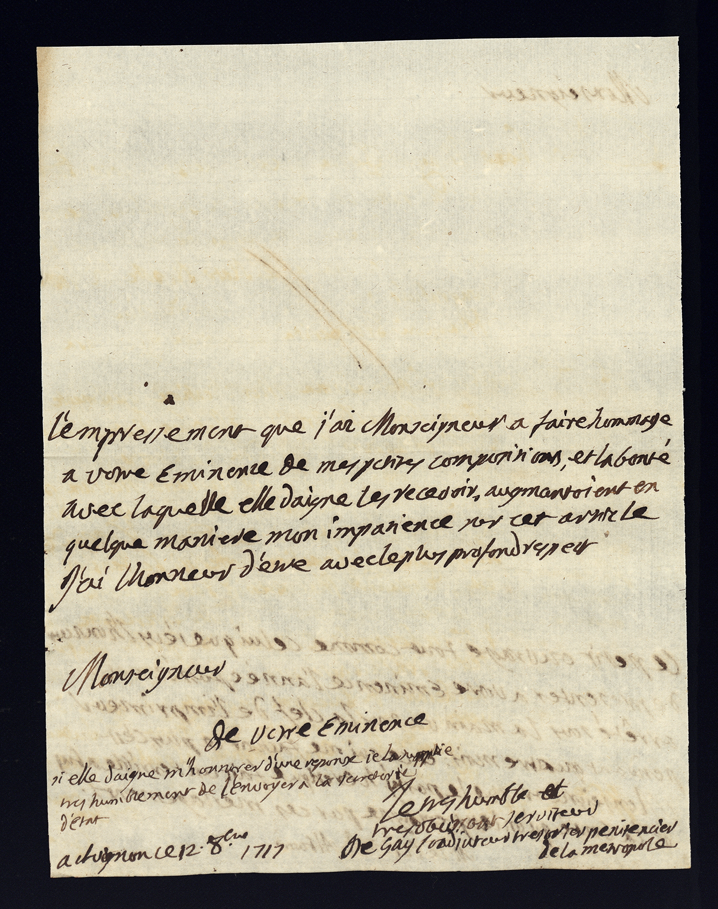 l'empressement que j'ai Monseigneur a faire hommage
a votre Eminence de mes petites compositions, et la bonté
avec laquelle elle daigne les recevoir, augmantoient en
quelque maniere mon impatience sur cet article
J'ai l'honneur d'etre avec le plus profond respect
Monseigneur
de votre Eminence
si elle daigne m'honnorer d'une reponse je la supplie
tres humblement de l'envoyer a la secretorie
d'Etat
Le tres humble et
tres obeissant serviteur
De Gay Coadjuteur penitencier
de la metropole
a Avignon ce 12. 8bre 1717